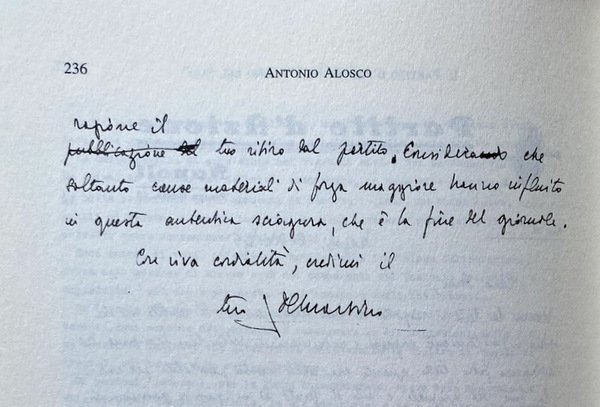 236
ANTONIO ALOSCO
ragione il
pubblicazione del tuo ritiro dal partito. Considerando che
soltanto cause materiali di forza maggiore hanno influito
in questa autentica sciagura, che è la fine del giornale.
Con viva cordialità, credimi il
tuo De Martino